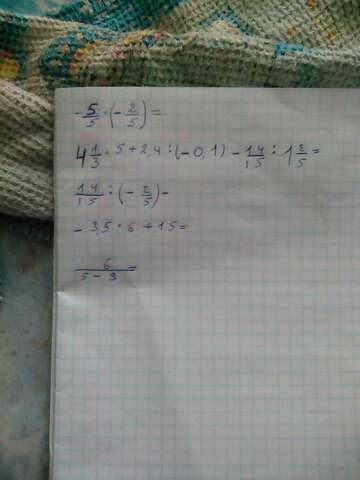 -5/5 · (-2/5) =
4 1/3 · 5 + 2,4 : (-0,1) - 14/15 : 1 2/5 =
14/15 : (-2/5) -
- 3,5 · 6 + 15 =
6/(5 - 3) =